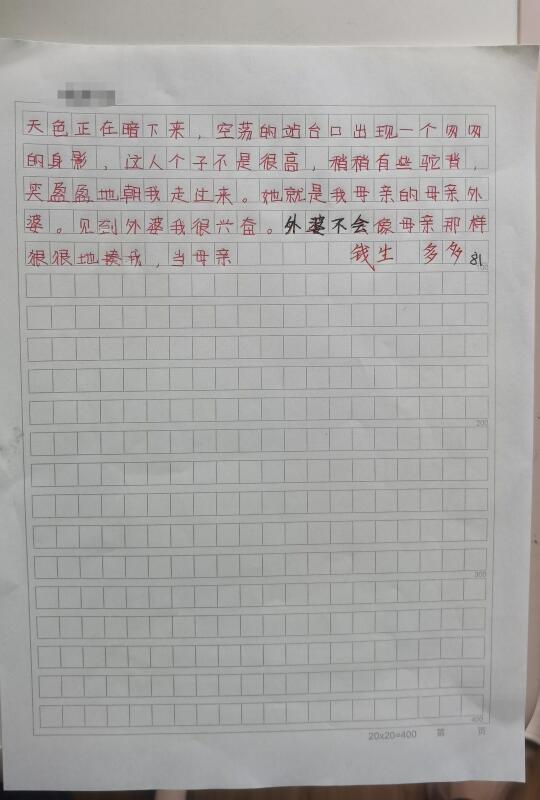 天色正在暗下来，空荡的站台口出现一个匆匆
的身影，这人个子不是很高，稍稍有些驼背，
笑盈盈地朝我走过来。她就是我母亲的母亲外
婆。见到外婆我很兴奋。外婆不会像母亲那样
狠狠地揍我，当母亲 钱生 多多 81
100
200
300
400
20x20=400 第 页